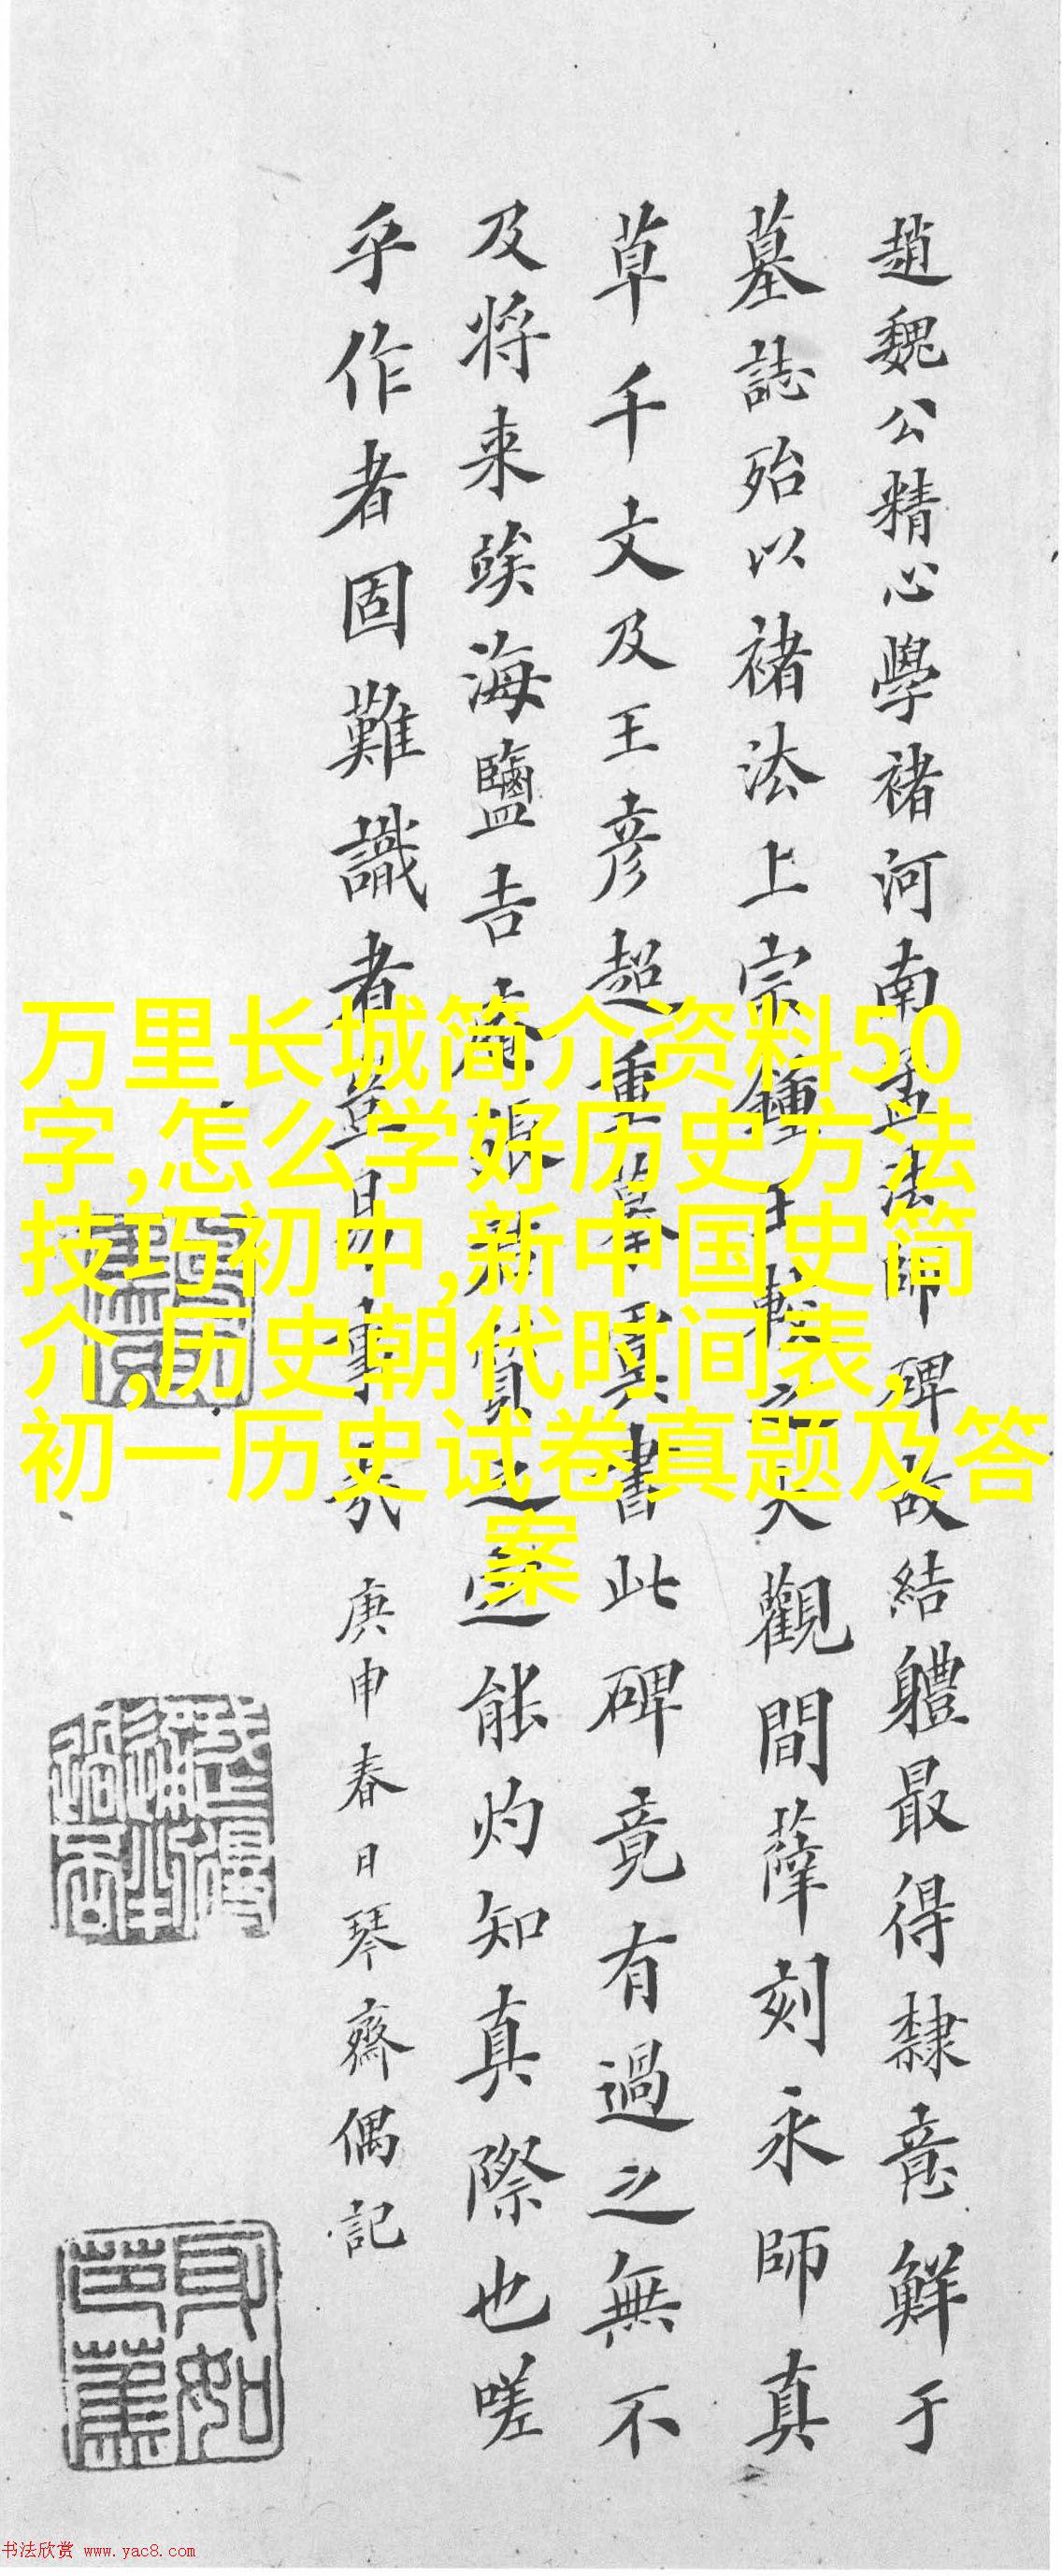 趙魏公精心學褚河南孟法師碑故結軆最得隸意鮮于
墓誌殆以褚法上宗鍾王較之大觀間薛刻永師真
草千文及王彥超重摹虞書此碑竟有過之無不
及将来竢海鹽吉張質之定能灼知真際也嗟
乎作者固難識者豈易事哉庚申春日琴齋偶記
万里长城简介资料50
字,怎么学好历史方法
技巧初中,新中国史简
介,历史朝代时间表,
初一历史试卷真题及答
案
书法欣赏 www.yac8.com